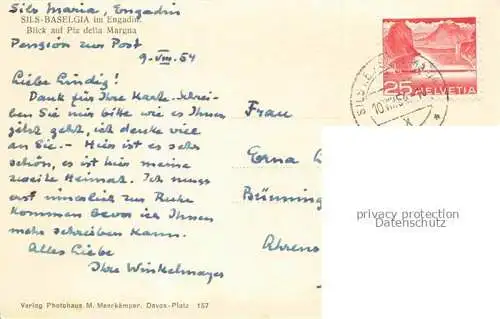 Sils Maria, Engadin
SILS-BASELGIA im Engadin.
Blick auf Piz della Margna
Pension zur Post
9. VIII. 54
Liebe Lindig!
Dank für Ihre Karte. Schrei-
ben Sie mir bitte wie es Ihnen
jetzt geht, ich denke viel
an Sie. – Hier ist es sehr
schön, es ist hier meine
zweite Heimat. Ich muss
erst innerlich zur Ruhe
kommen bevor ich Ihnen
mehr schreiben kann.
Alles Liebe
Ihre Winkelmayer
Verlag Photohaus M. Maerkämper. Davos-Platz 157
25 HELVETIA
SILS
10.VIII.54
Frau
Erna
Brünning
Ahrens
privacy protection
Datenschutz